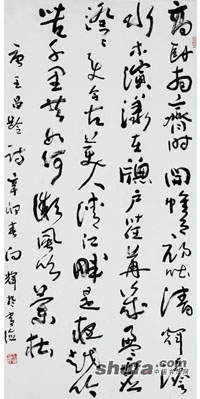 高卧南斋时开帷月初吐清辉澹
水木演漾在窗户苒苒几盈虚
澄澄变今古美人清江畔是夜越吟
苦千里其如何微风吹兰杜
唐王昌龄诗辛卯春向辉于